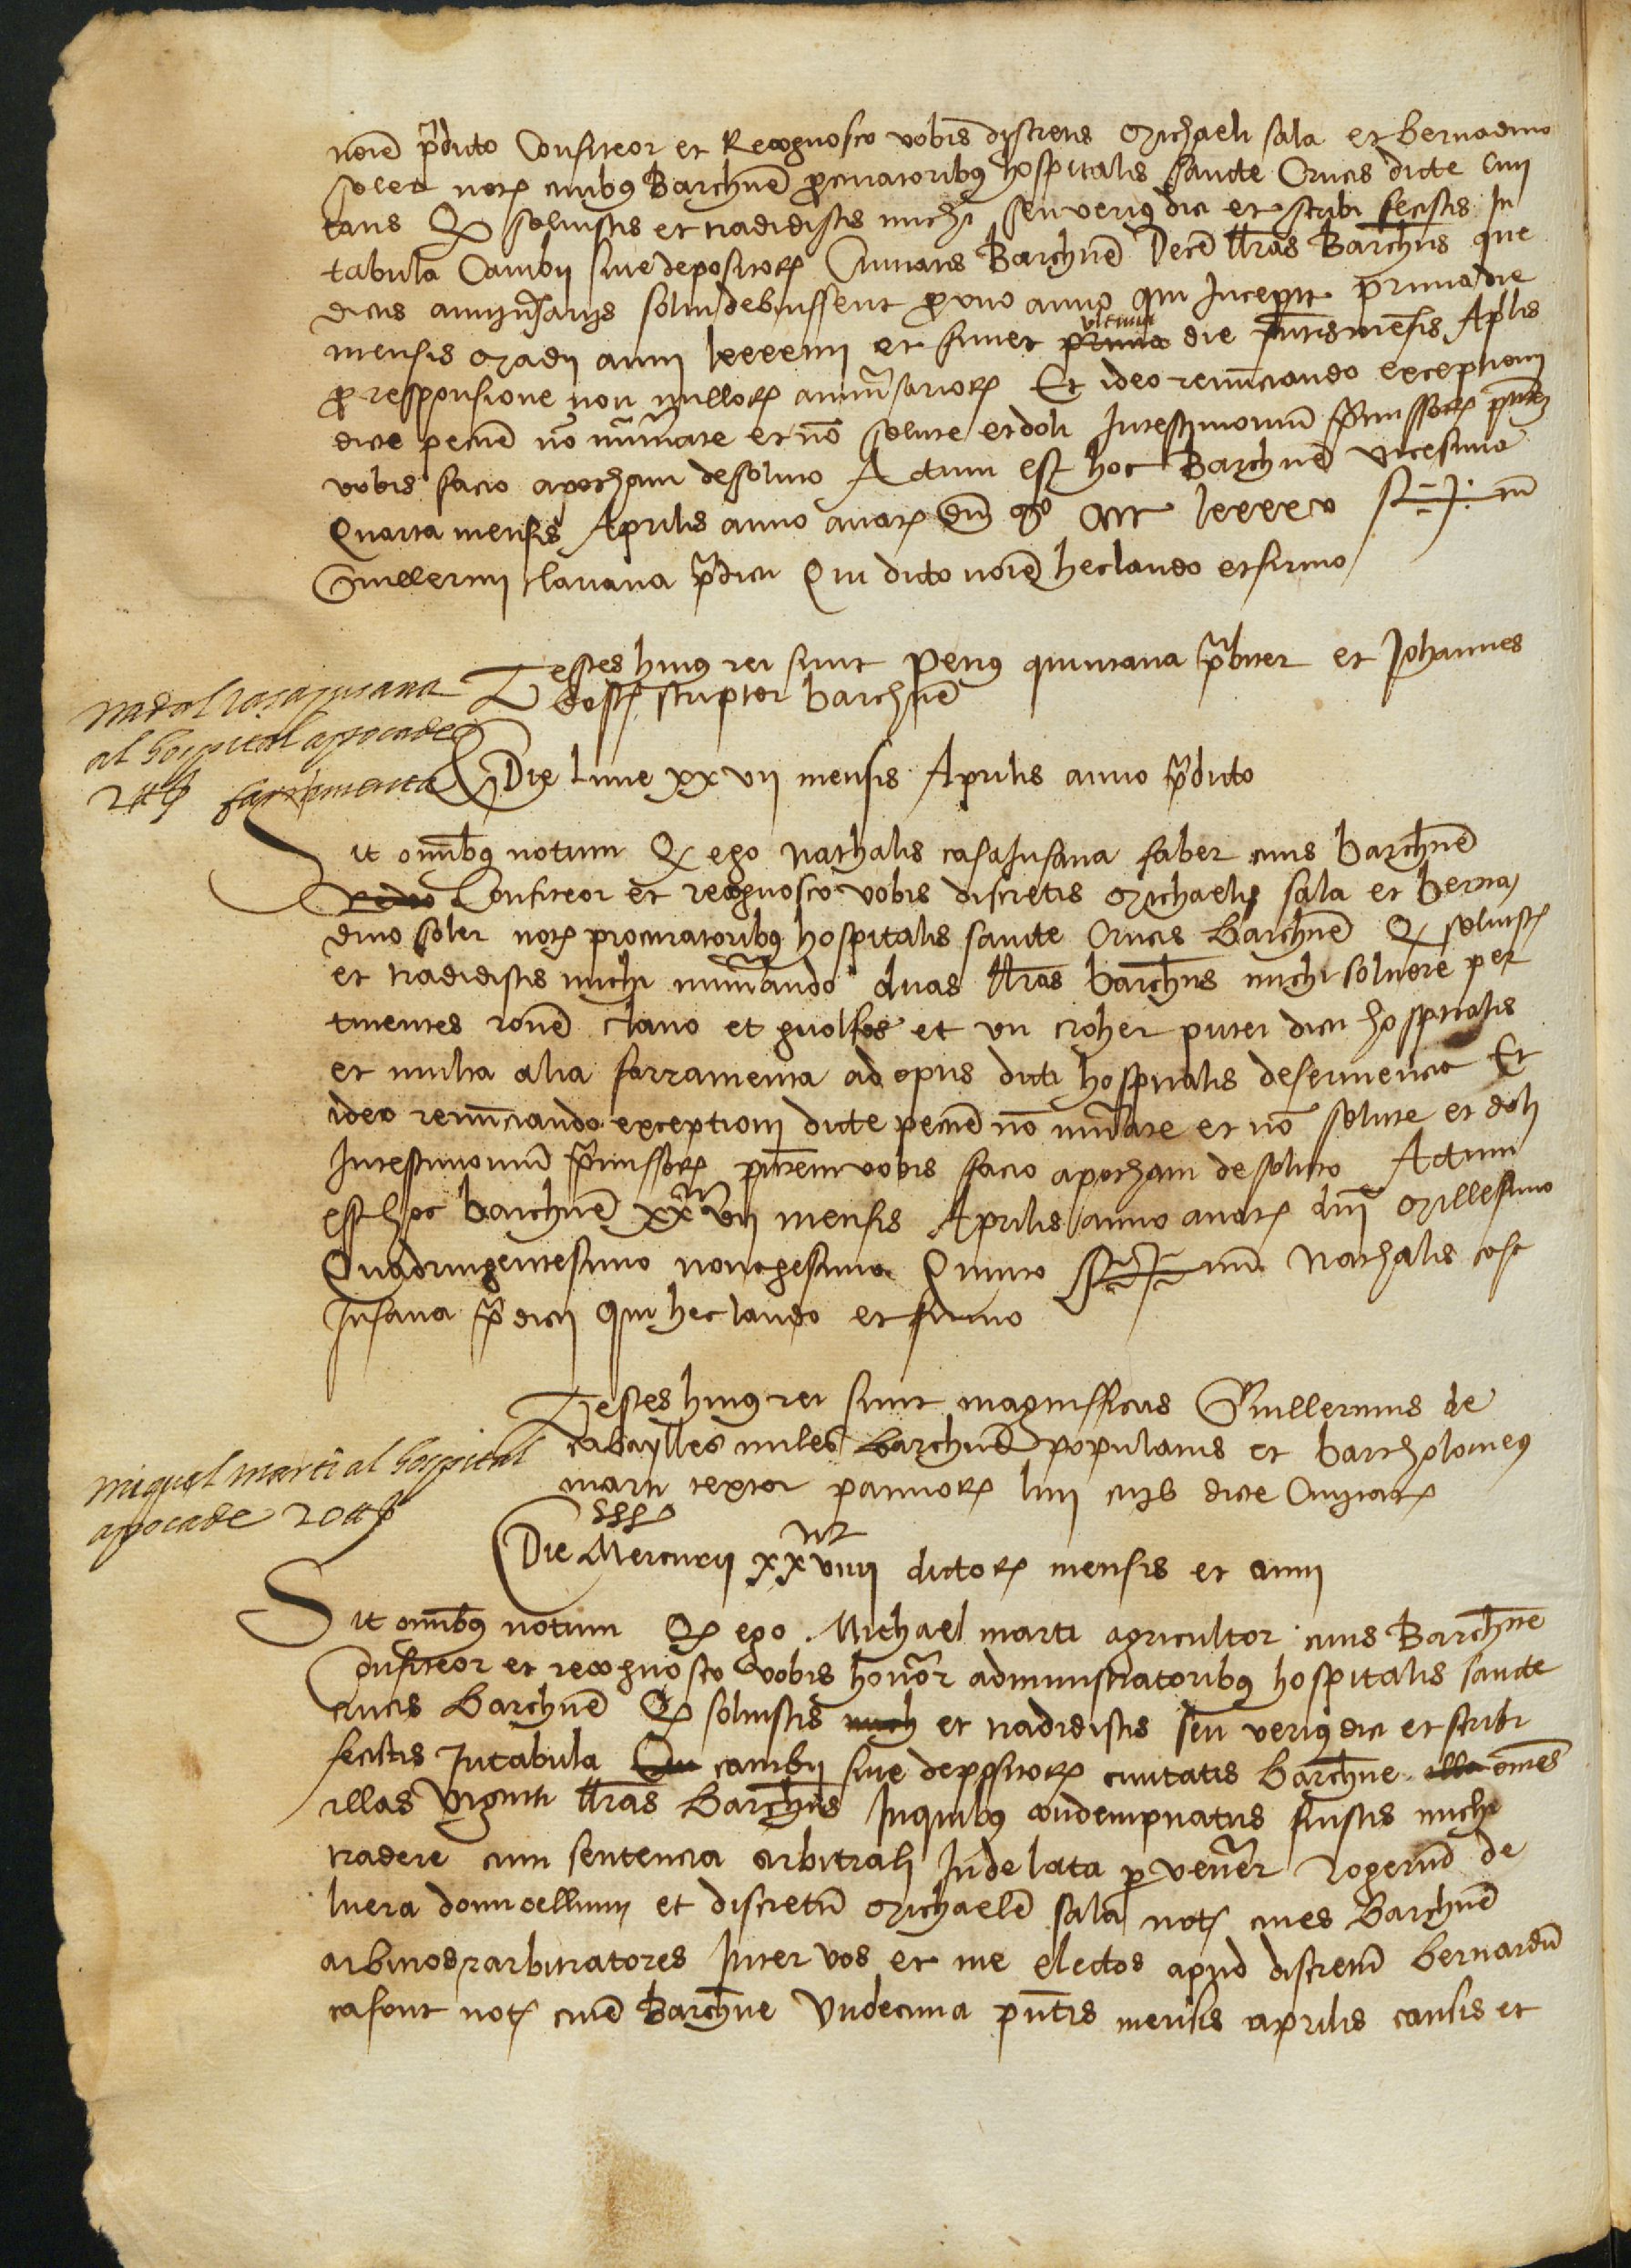 noiē p̄dicto Confiteor et Recognosco vobis discretis Michaeli sala et bernardino
soler notꝝ civibꝰ Barchn̄e ꝓcuratoribꝰ hospitalis sancte Crucis dicte Civi
tatis Qꝫ solvistis et tradidistis michi seu verius dici et scribi fecistis In
tabula Cambij sive depositorꝝ Civitatis Barchn̄e Decē llr̄as Barchn̄s que
dictis anniv̄sarijs solvi debuissent ꝓ uno anno qui Incepit prima die
mensis Madij anni lxxxxiiij et finiet prima ultima die pn̄tis mensis Aplis
ꝓ responsione non nullorꝝ anniv̄sariorꝝ Et ideo renūciando exceptioni
dicte pecuīe nō nūmate et nō solute et doli In testimoniūm p̄missorꝝ pn̄tē
vobis facio apocham de soluto Actum est hoc Barchn̄e vicesima
Quarta mensis Aprilis anno a natꝝ Dnī Mº CCCC lxxxxv S ✝ nū
Guillermi clariana p̄dicti Qui dicto noīe hec laudo et firmo
Testes huiꝰ rei sunt Petrus quintana p̄biter et Johannes
scriptor barchn̄e
Nadal casajusana
al hospital apoca de
2 ll ferramenta
Die lune xxvii mensis Aprilis anno p̄dicto
Sit omībꝰ notum Qꝫ ego Nathalis casa Jusana faber civis barchn̄e
Confiteor et recognosco vobis discretis Michaeli sala et berna
dino soler notꝝ procuratoribꝰ hospitalis sancte Crucis Barchn̄e Qꝫ solvistꝭ
et tradidistis michi nūmando duas llr̄as barchn̄s michi solvere per
tinentes rōnē clavo et guolfos et un croher putei dicti hospitalis
et multa alia farramenta ad opus dicti hospitalis deservienc̄ Et
ideo renūciando exceptioni dicte pecuīe nō nūmate et nō solute et doli
In testimoniū p̄missorꝝ pn̄tem vobis facio apocham de soluto Actum
est hoc barchn̄e xxvii mensis Aprilis anno a natꝝ dnī Millesimo
Quadringentesimo nonagesimo Quinto S ✝ num Nathalis casa
Jusana p̄dicti qui hec laudo et firmo
Testes huiꝰ rei sunt magnifficus Guillermus de
cabaylles miles Barchn̄e populatus et bartholomeꝰ
marti textor pannorꝝ lini civis dicte Civitatꝭ
miquel marti al hospital
apoca de 20 ll
Die Mercurij xxviiii dictorꝝ mensis et anni
Sit omībꝰ notum Qꝫ ego Michael marti agricultor civis Barchn̄e
Confiteor et recognosco vobis honor̄ administratoribꝰ hospitalis sancte
crucis Barchn̄e Qꝫ solvistis mich et tradidistis seu verius dici et scribi
fecistis In tabula cambij sive depositorꝝ civitatis Barchn̄e illa omēs
illas viginti llr̄as Barchn̄s In quibꝰ condempnatus fuistis michi
tradere cum sentencia arbitrali Inde lata ꝑ vener̄ Rogeriū de
luera domicellum et discretū Michaelē sala notꝝ cives Barchn̄e
arbitros arbitratores Inter vos et me electos apud discretū bernardū
casont notꝝ civē Barchn̄e Undecima pn̄tis mensis aprilis causis et